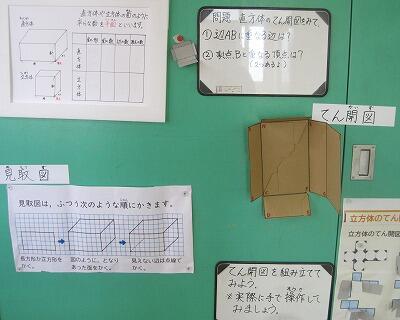 直方体や立方体の面のように
平らな面を平面といいます。
直方体
立方体
面の形
面の数
辺の数
頂点の数
直方体
立方体
問題 直方体のてん開図をみて、
①辺ABに重なる辺は?
②頂点Bと重なる頂点は?
(2つあるよ)
てん開図
見取図
見取図は、ふつう次のような順にかきます。
長方形か正方形を
かく。
図のように、となり
あった面をかく。
見えない辺は点線で
かく。
てん開図を組み立てて
みよう。
※実際に手で操作して
みましょう。
立方体のてん開
立方体のてん開図